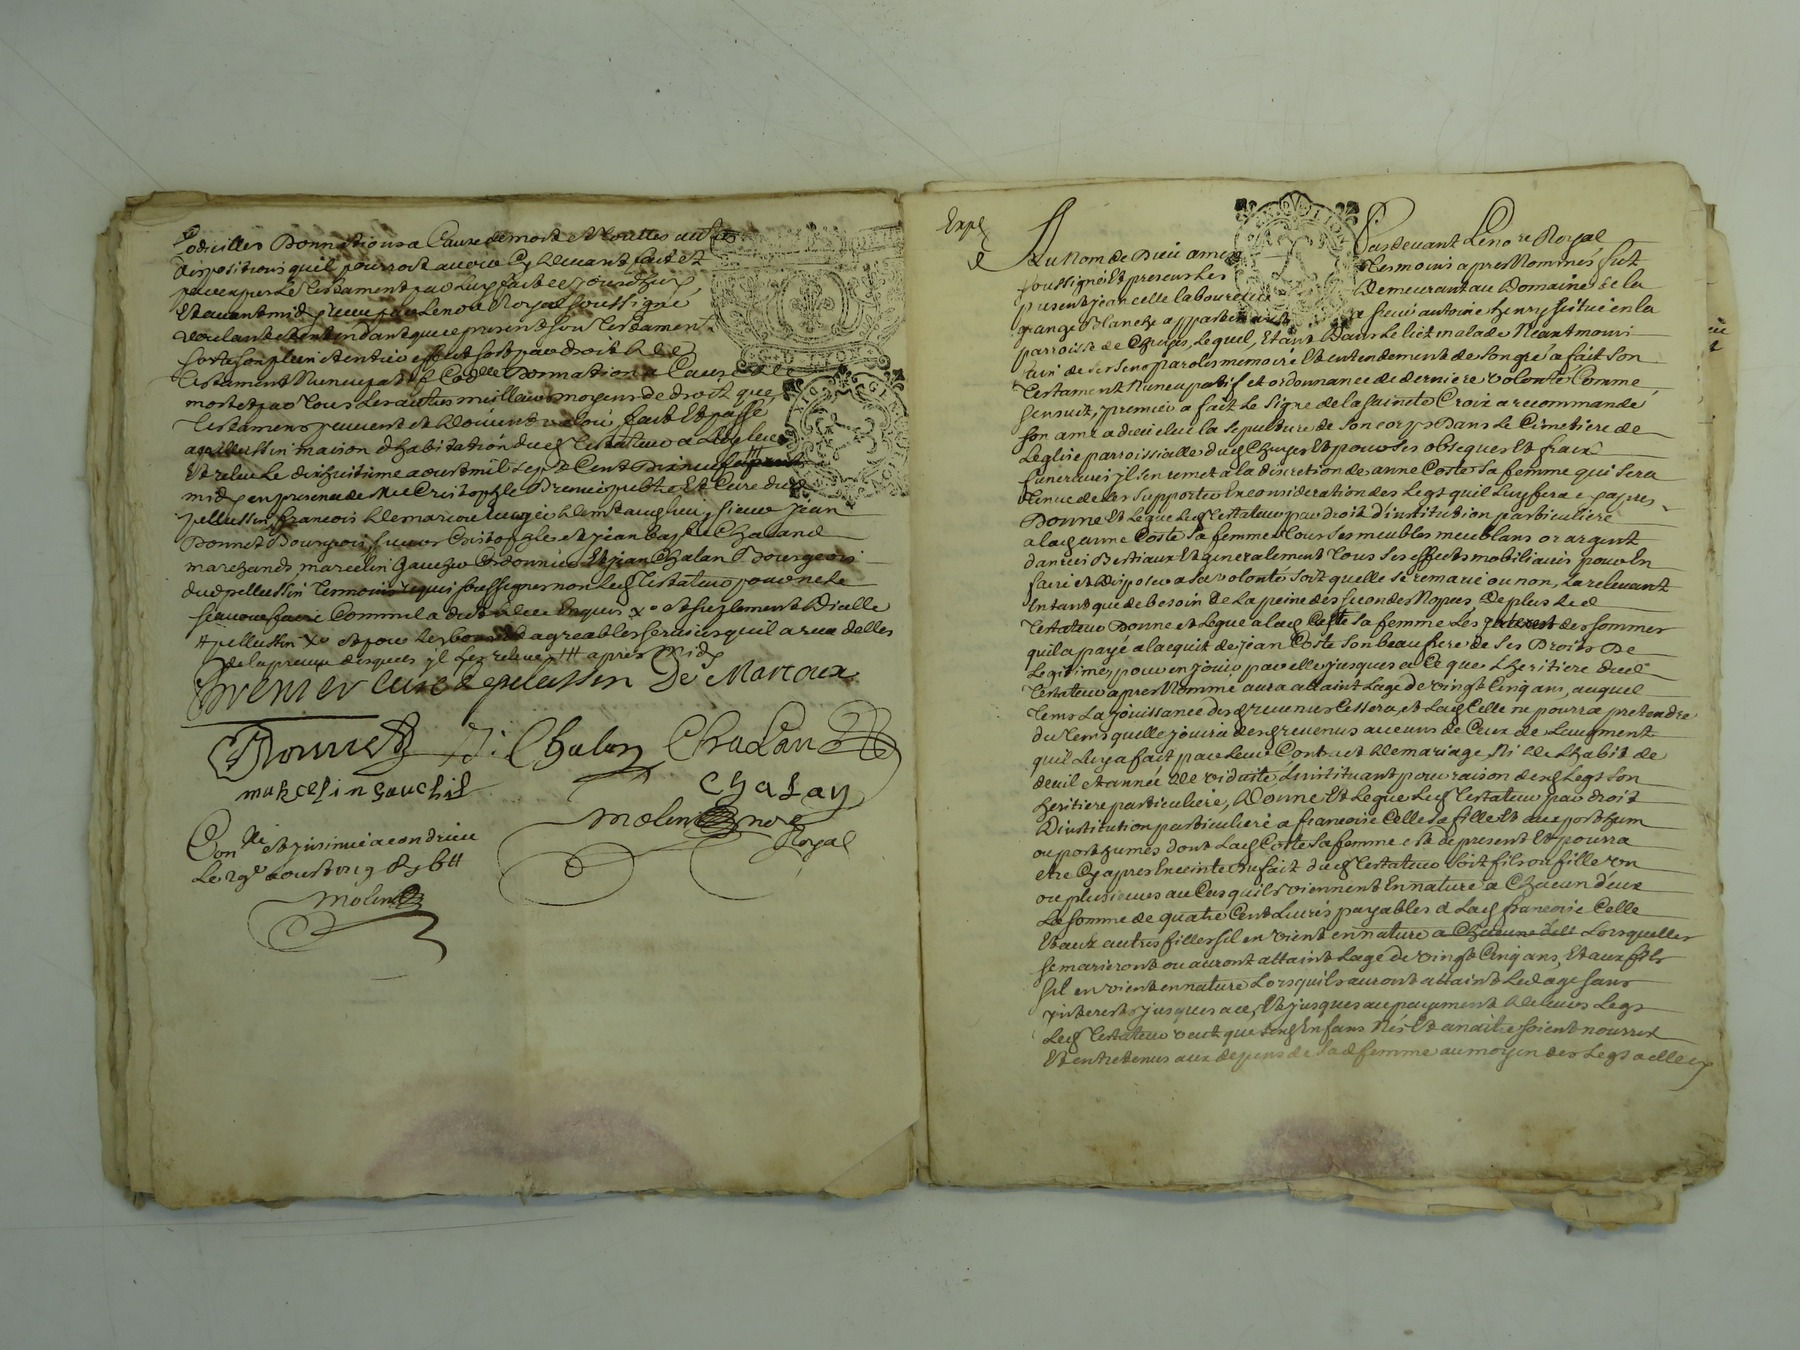 Codicilles Donnations a Cause de mort et touttes autres
dispositions quil pourroit avoir Cy devant fait et
Et avant midy receu par Lenore Royal soussigné
voulant et entendant que ce present son testament
sorte son plein et entier effect soit par droit de
testament Nuncupatif Codlle Donnation a Cause de
mort et par tous Les autres meilleurs moyens de droit que
testamens peuvent et doivent valoir, fait Et passé
a pellussin maison d'habitation dud testateur a
Et relu Le dixhuitième aoust mil sept Cent Dixneuf avant
midy en presence de Mre Cristophle Prenier pbtre Et Cure dud
pellussin, francois demarcoux
Bonnet Bourgeois, sieurs Christophle et jean baptiste Chaland
marchands, marcelin Gauchier Cordonnier Et jean Chalan Bourgeois
dud pellussin temoins requis soussignes non led testateur pour ne le
scavoir faire Comme il a dit de ce Enquis
pellussin xo et pour Les bons et agreables services quil a receu delles
de la preuve desquels jl Les releve /// apres Midy
Prenier Curé de pelussin De Marcoux
Bonnet J: Chalan Chalan
marcelin Gauchié Chalan
molin nore
Royal
Conlle et jnsinué a condrieu
Le 29e aoust 1719 R 36
molin
Expé
Au Nom de Dieu amen Pardevant Lenore Royal
soussigné Et presens Les tesmoins apres Nommés fut
present jean celle laboureur Demeurant au Domaine de la
grange Blanche appartenant a sieur antoine henry situé en la
parroisse de Chuyes, Lequel, Etant Dans Le lict malade Neantmoins
sain de ses sens parolles memoire Et entendement de son gré a fait son
testament Nuncupatif et ordonnance de derniere volonté Comme
sensuit, premier a fait Le signe de la sainte Croix a recommandé
son ame a dieu elu la sepulture de son corps Dans Le Cimetiere de
Leglise parroissialle dud Chuyes Et pour ses obseques Et fraix
funeraires jl s'en remet a la discretion de anne Coste sa femme qui sera
tenue de les supporter En consideration des Legs quil Luy fera cy apres
Donne Et Legue Led testateur par droit d'institution particuliere
a lad anne Coste sa femme tous ses meubles meublans or argent
danrées Bestiaux Et generalement tous ses effects mobiliaires pour En
faire et disposer a sa volonté soit quelle se remarie ou non, La relevant
En tant que de besoin de La peine des secondes Nopces, De plus Led
testateur Donne et Legue a lad Coste sa femme Les jnterest des sommes
quil a payé a lacquit de jean Coste son beaufrere de ses Droits De
Legitime, pour en jouir par elle jusques a Ce que Lheritiere dud
testateur apres Nommé aura attaint Lage de vingt Cinq ans, auquel
tems La jouissance desd revenus Cessera, et Lad Celle ne pourra pretendre
du tems quelle jouira desd revenus aucuns de Ceux de Laugment
quil Luy a fait par leur Contract de mariage, Ni de Lhabit de
deuil et année de viduité Linstituant pour raison desd Legs son
heritiere particuliere, Donne Et Legue Led testateur par droit
Dinstitution particuliere a francoise Celle sa fille Et au postum
ou postumes dont Lad Coste sa femme est de present Et pourra
etre Cy apres Enceinte du fait dud testateur soit fils ou fille un
ou plusieurs au Cas quils viennent En nature a Chacun deux
La somme de quatre Cent Livres payables a Lad francoise Celle
Et aux autres filles sil en vient en nature a Chacune delle Lorsquelles
se marieront ou auront attaint Lage de vingt Cinq ans, Et aux fils
sil en vient en nature Lorsquils auront attaint Led age sans
jnterests jusques a ce, Et jusques au payement de leurs Legs
Led testateur veut que lesd Enfans Nés Et a naitre soient nourris
Et entretenus aux depens de Lad femme au moyen des Legs a elle